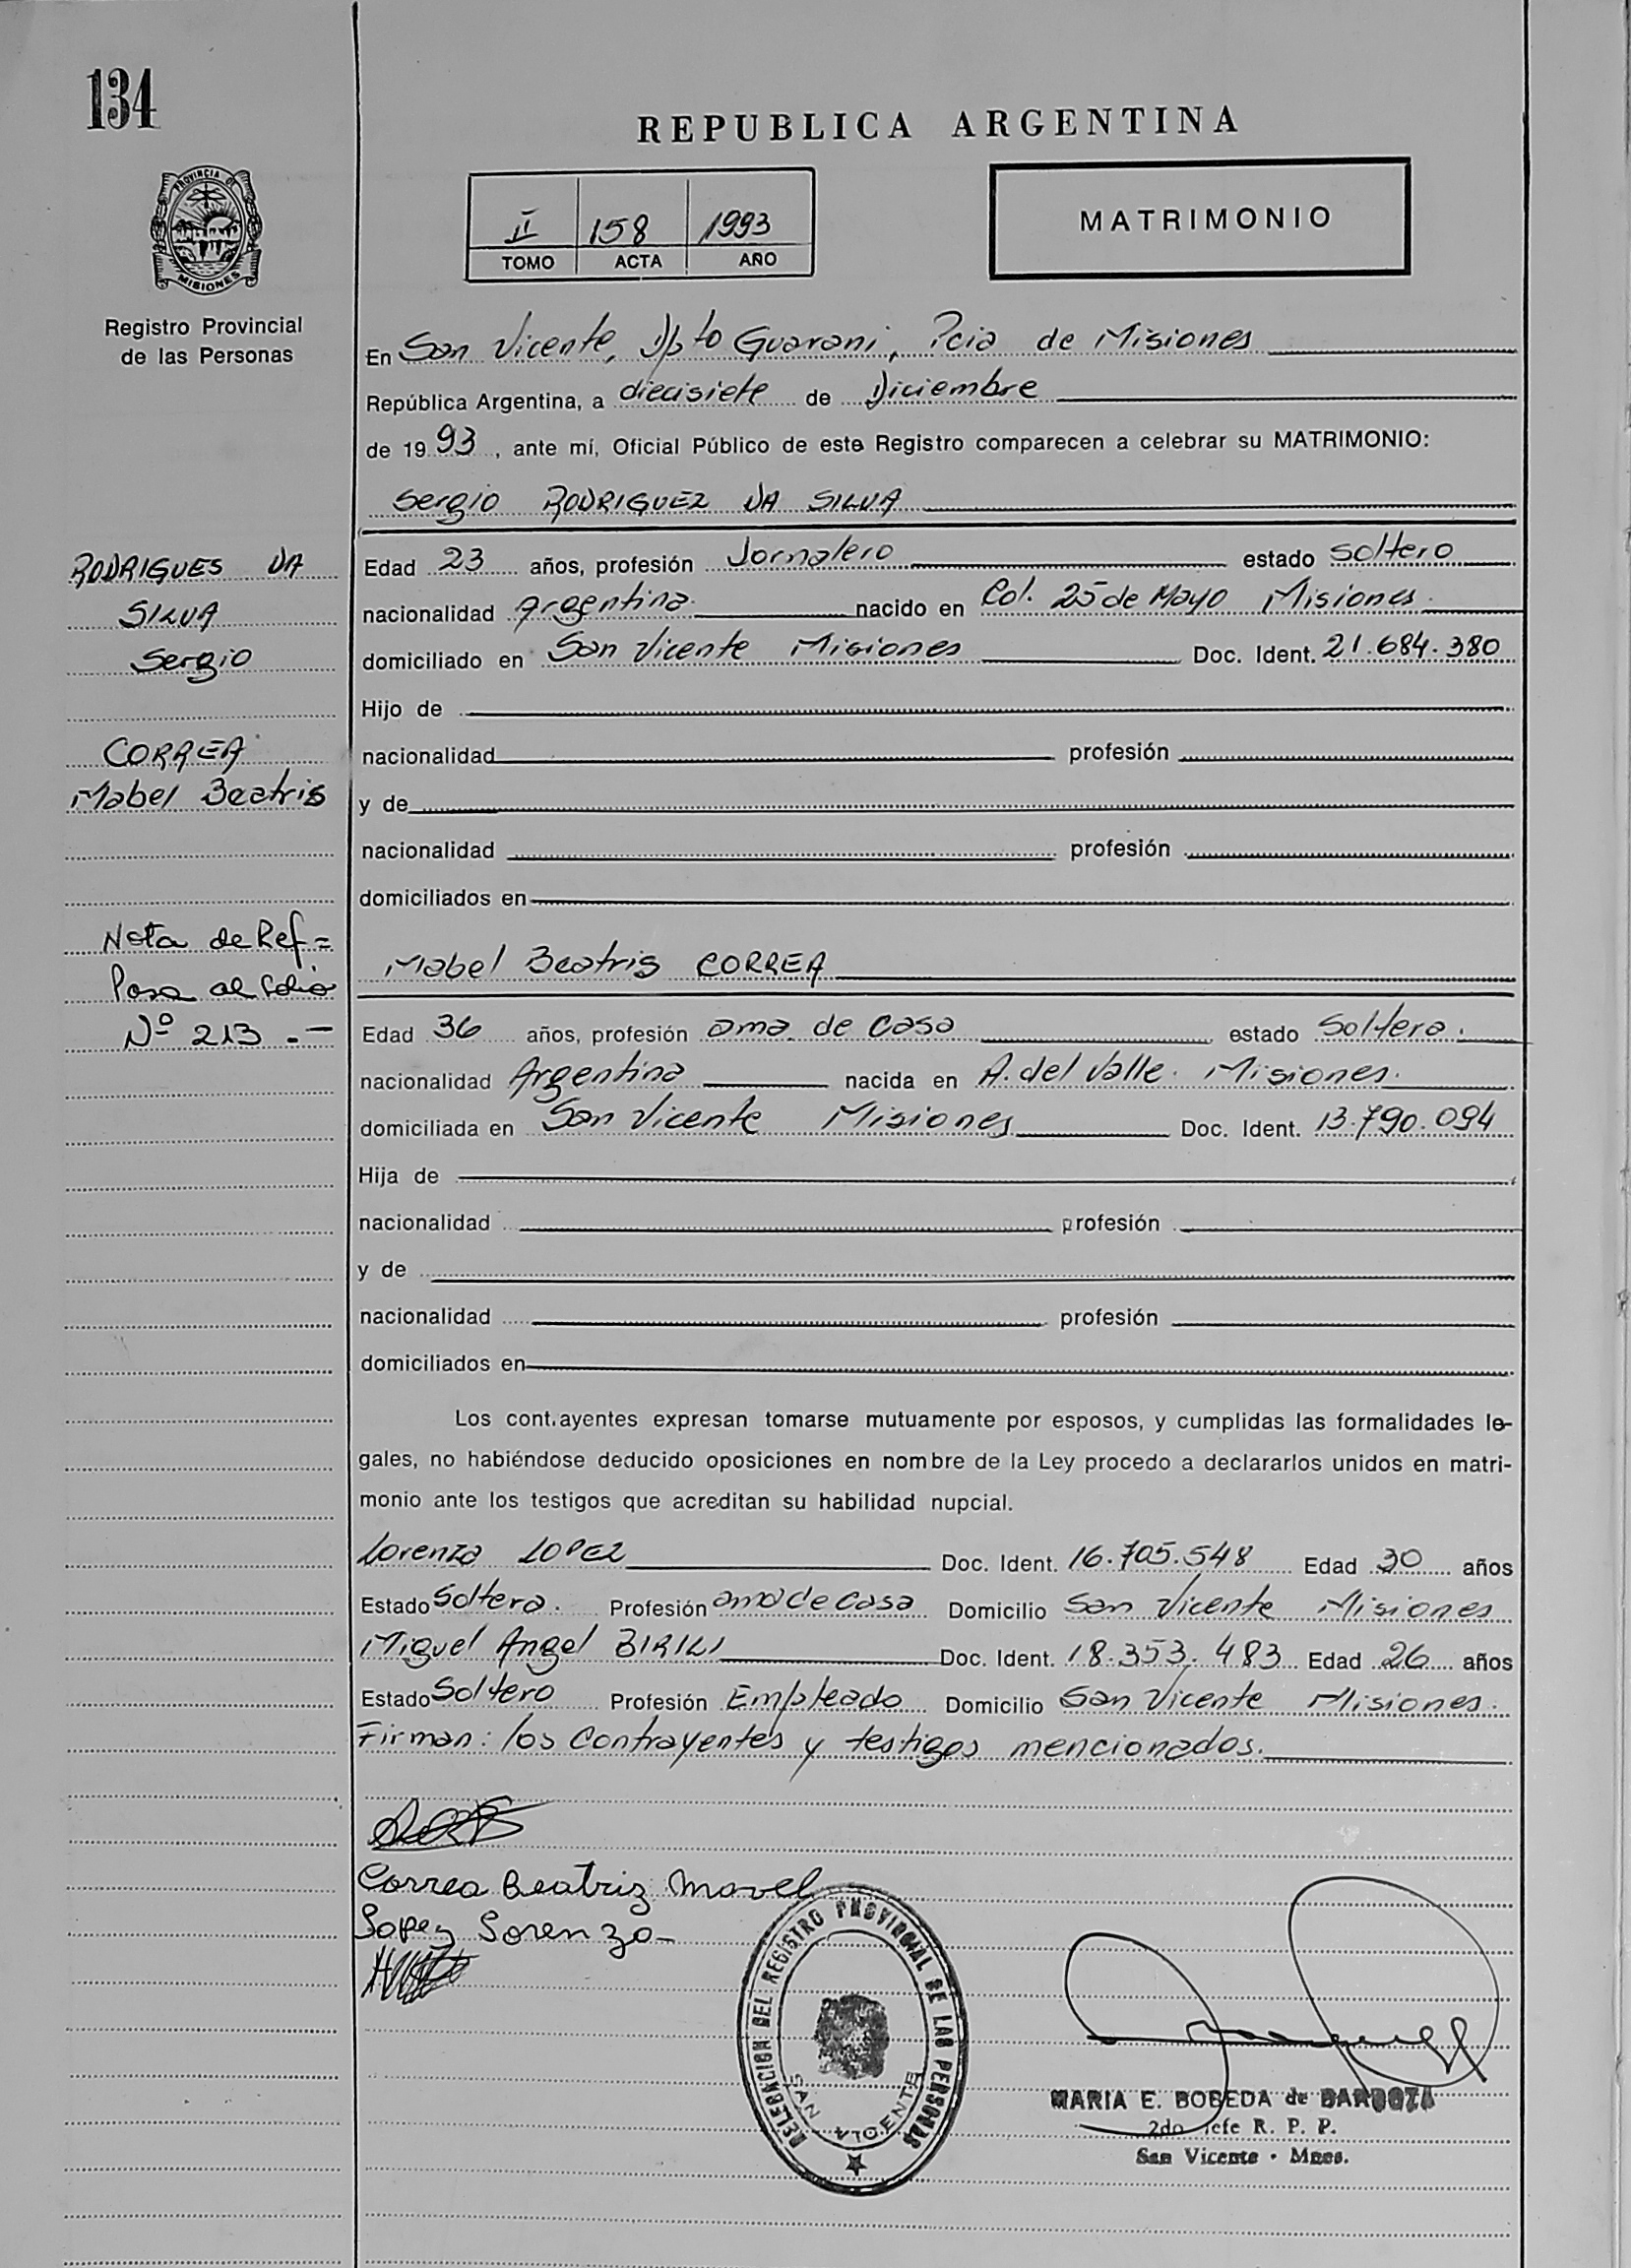 134
REPUBLICA ARGENTINA
PROVINCIA DE
MISIONES
II 158 1993
TOMO ACTA AÑO
MATRIMONIO
Registro Provincial
de las Personas
En San Vicente, Dpto Guarani, Pcia de Misiones
República Argentina, a diecisiete de Diciembre
de 19 93, ante mí, Oficial Público de este Registro comparecen a celebrar su MATRIMONIO:
Sergio RODRIGUEZ DA SILVA
RODRIGUES DA
SILVA
Sergio
CORREA
Mabel Beatris
Nota de Ref =
Pasa al folio
Nº 213 . -
Edad 23 años, profesión Jornalero estado soltero
nacionalidad Argentina nacido en Col. 25 de Mayo Misiones.
domiciliado en San Vicente Misiones Doc. Ident. 21.684.380
Hijo de
nacionalidad profesión
y de
nacionalidad profesión
domiciliados en
Mabel Beatris CORREA
Edad 36 años, profesión ama de casa estado Soltera.
nacionalidad Argentina nacida en A. del Valle. Misiones.
domiciliada en San Vicente Misiones Doc. Ident. 13.790.094
Hija de
nacionalidad profesión
y de
nacionalidad profesión
domiciliados en
Los cont.ayentes expresan tomarse mutuamente por esposos, y cumplidas las formalidades le-
gales, no habiéndose deducido oposiciones en nombre de la Ley procedo a declararlos unidos en matri-
monio ante los testigos que acreditan su habilidad nupcial.
Lorenza LOPEZ Doc. Ident. 16.705.548 Edad 30 años
Estado Soltera. Profesión ama de casa Domicilio San Vicente Misiones
Miguel Angel BIRILI Doc. Ident. 18.353.483 Edad 26 años
Estado Soltero Profesión Empleado Domicilio San Vicente Misiones.
Firman: los Contrayentes y testigos mencionados.
Correa Beatriz Mavel
Lopez Lorenza
DELEGACION DEL REGISTRO PROVINCIAL DE LAS PERSONAS
SAN VICENTE
MARIA E. BOBEDA de BARBOZA
2do Jefe R. P. P.
San Vicente · Mnes.